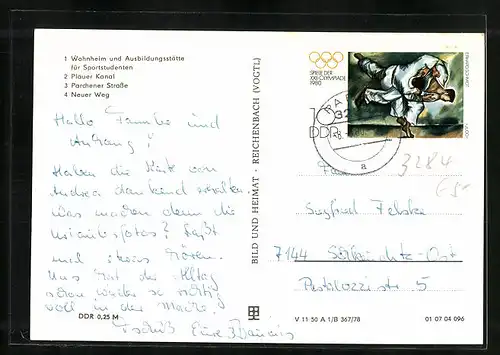 1 Wohnheim und Ausbildungsstätte
für Sportstudenten
2 Plauer Kanal
3 Parchener Straße
4 Neuer Weg
Hallo Familie und
Anhang!
Haben die Karte von
Andrea dankend erhalten.
Was machen denn die
Urlaubsfotos? Laßt
mal etwas hören.
Uns hat der Alltag
schon wieder so richtig
voll in der Mache.
Tschüß Eure
DDR 0,25 M
BILD UND HEIMAT · REICHENBACH (VOGTL)
V 11 50 A 1/B 367/78
01 07 04 096
SPIELE DER
XXII. OLYMPIADE
1980
10
DDR
a
3284
Siegfried
7144 Schkeuditz-Ost
Pestalozzistr. 5